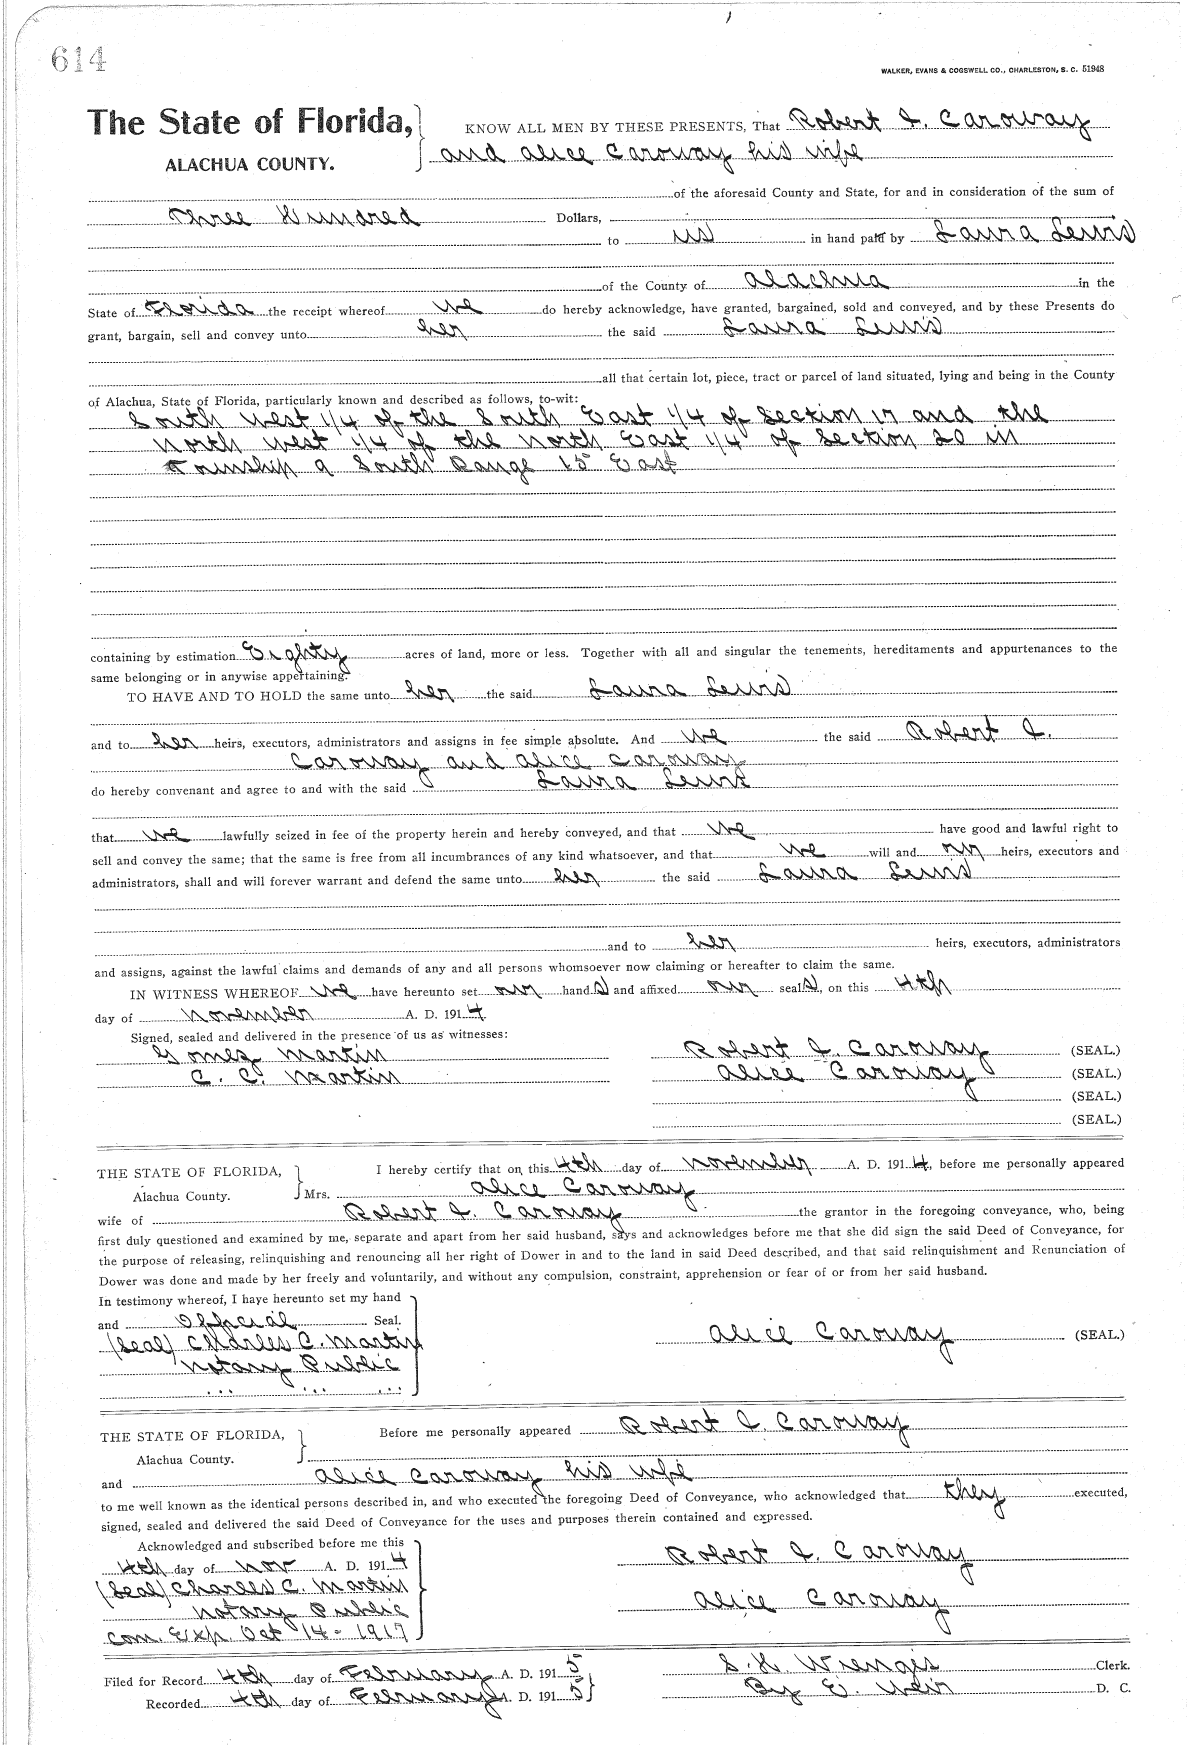 614
WALKER, EVANS & COGSWELL CO., CHARLESTON, S. C. 51948
The State of Florida, KNOW ALL MEN BY THESE PRESENTS, That Robert I. Caroway
ALACHUA COUNTY. and Alice Caroway his wife
of the aforesaid County and State, for and in consideration of the sum of
Three Hundred Dollars,
to us in hand paid by Laura Lewis
of the County of Alachua in the
State of Florida the receipt whereof we do hereby acknowledge, have granted, bargained, sold and conveyed, and by these Presents do
grant, bargain, sell and convey unto her the said Laura Lewis
all that certain lot, piece, tract or parcel of land situated, lying and being in the County
of Alachua, State of Florida, particularly known and described as follows, to-wit:
South West 1/4 of the South East 1/4 of Section 17 and the
North West 1/4 of the North East 1/4 of Section 20 in
Township 9 South Range 15 East
containing by estimation Eighty acres of land, more or less. Together with all and singular the tenements, hereditaments and appurtenances to the
same belonging or in anywise appertaining.
TO HAVE AND TO HOLD the same unto her the said Laura Lewis
and to her heirs, executors, administrators and assigns in fee simple absolute. And we the said Robert I.
Caroway and Alice Caroway
do hereby convenant and agree to and with the said Laura Lewis
that we lawfully seized in fee of the property herein and hereby conveyed, and that we have good and lawful right to
sell and convey the same; that the same is free from all incumbrances of any kind whatsoever, and that we will and our heirs, executors and
administrators, shall and will forever warrant and defend the same unto her the said Laura Lewis
and to her heirs, executors, administrators
and assigns, against the lawful claims and demands of any and all persons whomsoever now claiming or hereafter to claim the same.
IN WITNESS WHEREOF we have hereunto set our hands and affixed our seals, on this 4th
day of November A. D. 1914
Signed, sealed and delivered in the presence of us as witnesses:
Gomez Martin Robert I. Caroway (SEAL.)
C. C. Martin Alice Caroway (SEAL.)
(SEAL.)
(SEAL.)
THE STATE OF FLORIDA, I hereby certify that on this 4th day of November A. D. 1914, before me personally appeared
Alachua County. Mrs. Alice Caroway
wife of Robert I. Caroway the grantor in the foregoing conveyance, who, being
first duly questioned and examined by me, separate and apart from her said husband, says and acknowledges before me that she did sign the said Deed of Conveyance, for
the purpose of releasing, relinquishing and renouncing all her right of Dower in and to the land in said Deed described, and that said relinquishment and Renunciation of
Dower was done and made by her freely and voluntarily, and without any compulsion, constraint, apprehension or fear of or from her said husband.
In testimony whereof, I have hereunto set my hand
and Official Seal.
(Seal) Charles C. Martin Alice Caroway (SEAL.)
Notary Public
... ... ...
THE STATE OF FLORIDA, Before me personally appeared Robert I. Caroway
Alachua County.
and Alice Caroway his wife
to me well known as the identical persons described in, and who executed the foregoing Deed of Conveyance, who acknowledged that they executed,
signed, sealed and delivered the said Deed of Conveyance for the uses and purposes therein contained and expressed.
Acknowledged and subscribed before me this
4th day of Nov A. D. 1914 Robert I. Caroway
(Seal) Charles C. Martin
Notary Public Alice Caroway
Com. Exp. Oct 14 - 1917
Filed for Record 4th day of February A. D. 1915 S. H. Wienges Clerk.
Recorded 4th day of February A. D. 1915 By E. Weir D. C.